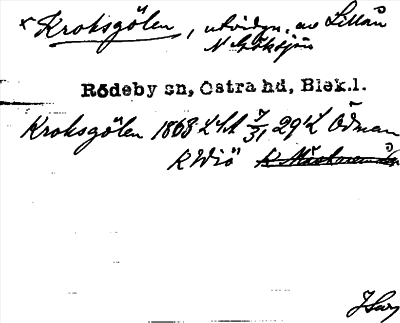 × Kroksgölen, utvidgn. av Lillån
N Göksjön
Rödeby sn, Östra hd, Blek.l.
Kroksgölen 1868 LSA 7/31 29 L Ödman